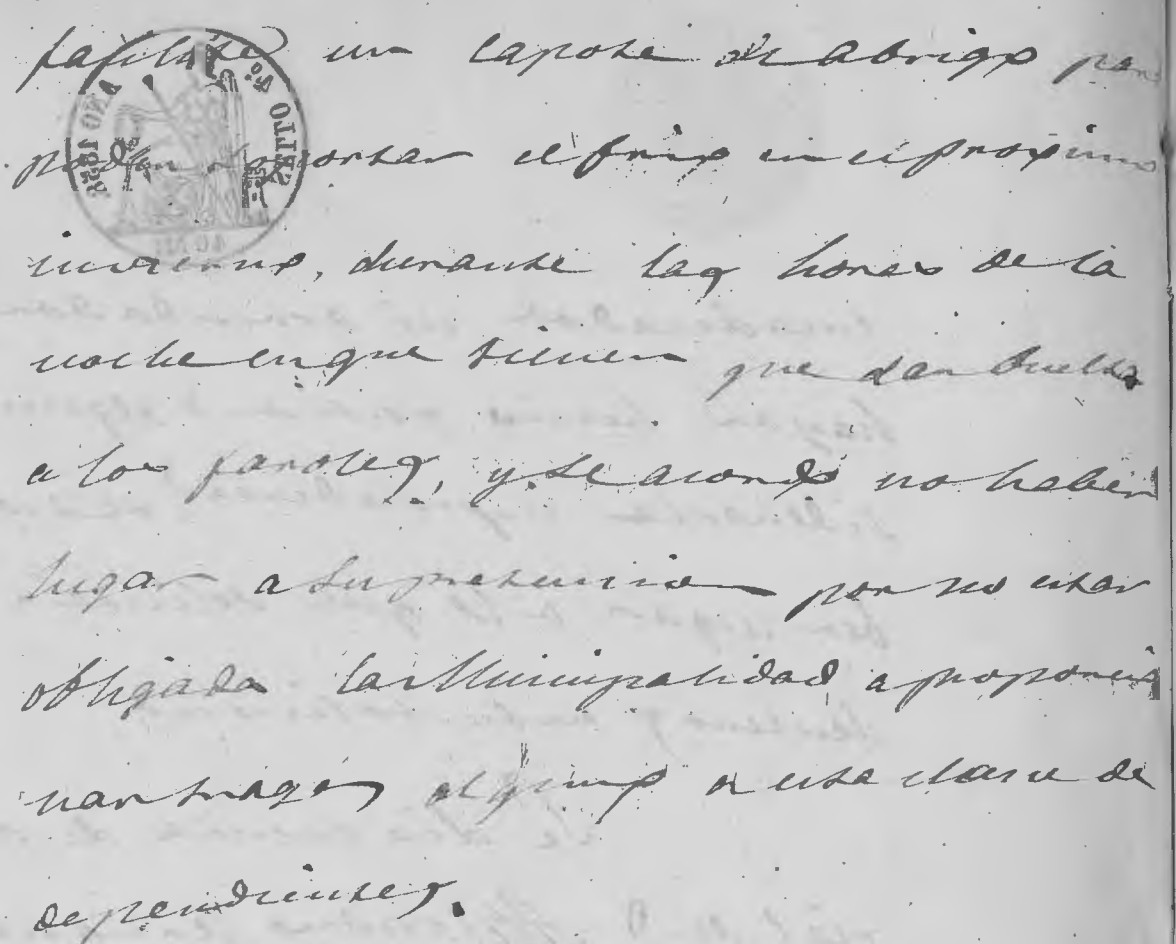 facilite un capote de abrigo para
poder soportar el frio en el proximo
invierno, durante las horas de la
noche en que tienen que dar buelta
a los faroles, y se acordó no haber
lugar a su pretencion por no estar
obligada la Municipalidad a proporcio
nar trages alguno a esta clase de
dependientes.